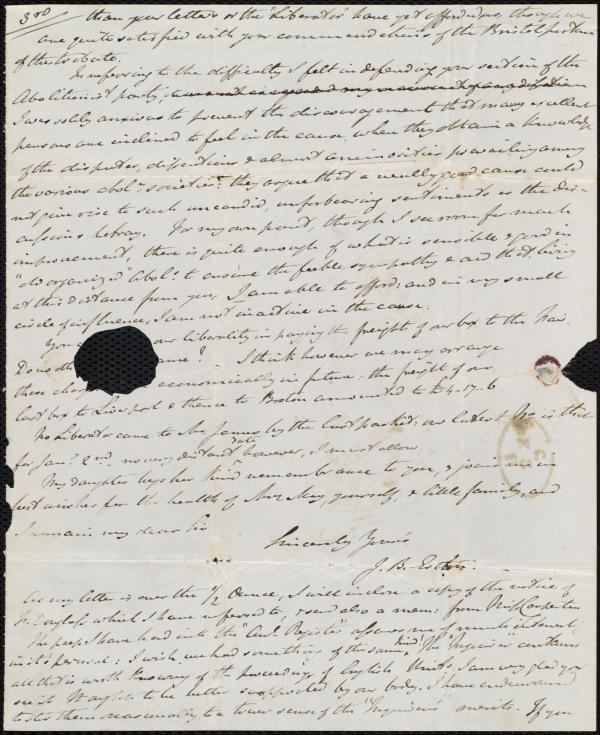 3rd
than your letters or the "Liberator" have yet afforded us, though we
are quite satisfied with your commendations of the Bristol portion
of the tribute.
In referring to the difficulty I felt in defending your section of the
Abolitionist party,
I was solely anxious to prevent the discouragement that many excellent
persons are inclined to feel in the cause, when they obtain a knowledge
of the disputes, dissentions & almost animosities prevailing among
the various abol: societies: they argue that a really good cause could
not give rise to such uncandid, unforbearing sentiments as the dis-
cussions betray. For my own part, though I see room for much
improvement, there is quite enough of what is sensible & good in
"old organized" Abol: to ensure the feeble sympathy & aid that, living
at this distance from you, I am able to afford: and in my small
circle of influence, I am not inactive in the cause.
You our liberality in paying the freight of our box to the Fair.
Do not same? I think however we may arrange
these economically in future: the freight of our
last box to Liverpool & thence to Boston amounted to £4.17.6
No Liberator came to Mr James by the last packet: our latest No is that
for Jany 2nd no very distant date however, I must allow.
My daughter begs her kind remembrance to you, & joins me in
best wishes for the health of Mrs May, yourself, & little family, and
I remain my dear Sir
Sincerely Yours
J. B. Estlin
As my letter is over the 1/2 Ounce, I will inclose a copy of the notice of
F. Douglass which I have referred to, & send also a mem: from Miss Carpenter
The peep I have had into the "Ch: Register" assures me of much interest
in its perusal: I wish we had something of the same kind. The "Inquirer" contains
all that is worth knowing of the proceedings of English Units, I am very glad you
see it. It ought to be better supported by our body. I have endeavoured
to stir them occasionally to a truer sense of the "Inquirer's" merits. If you